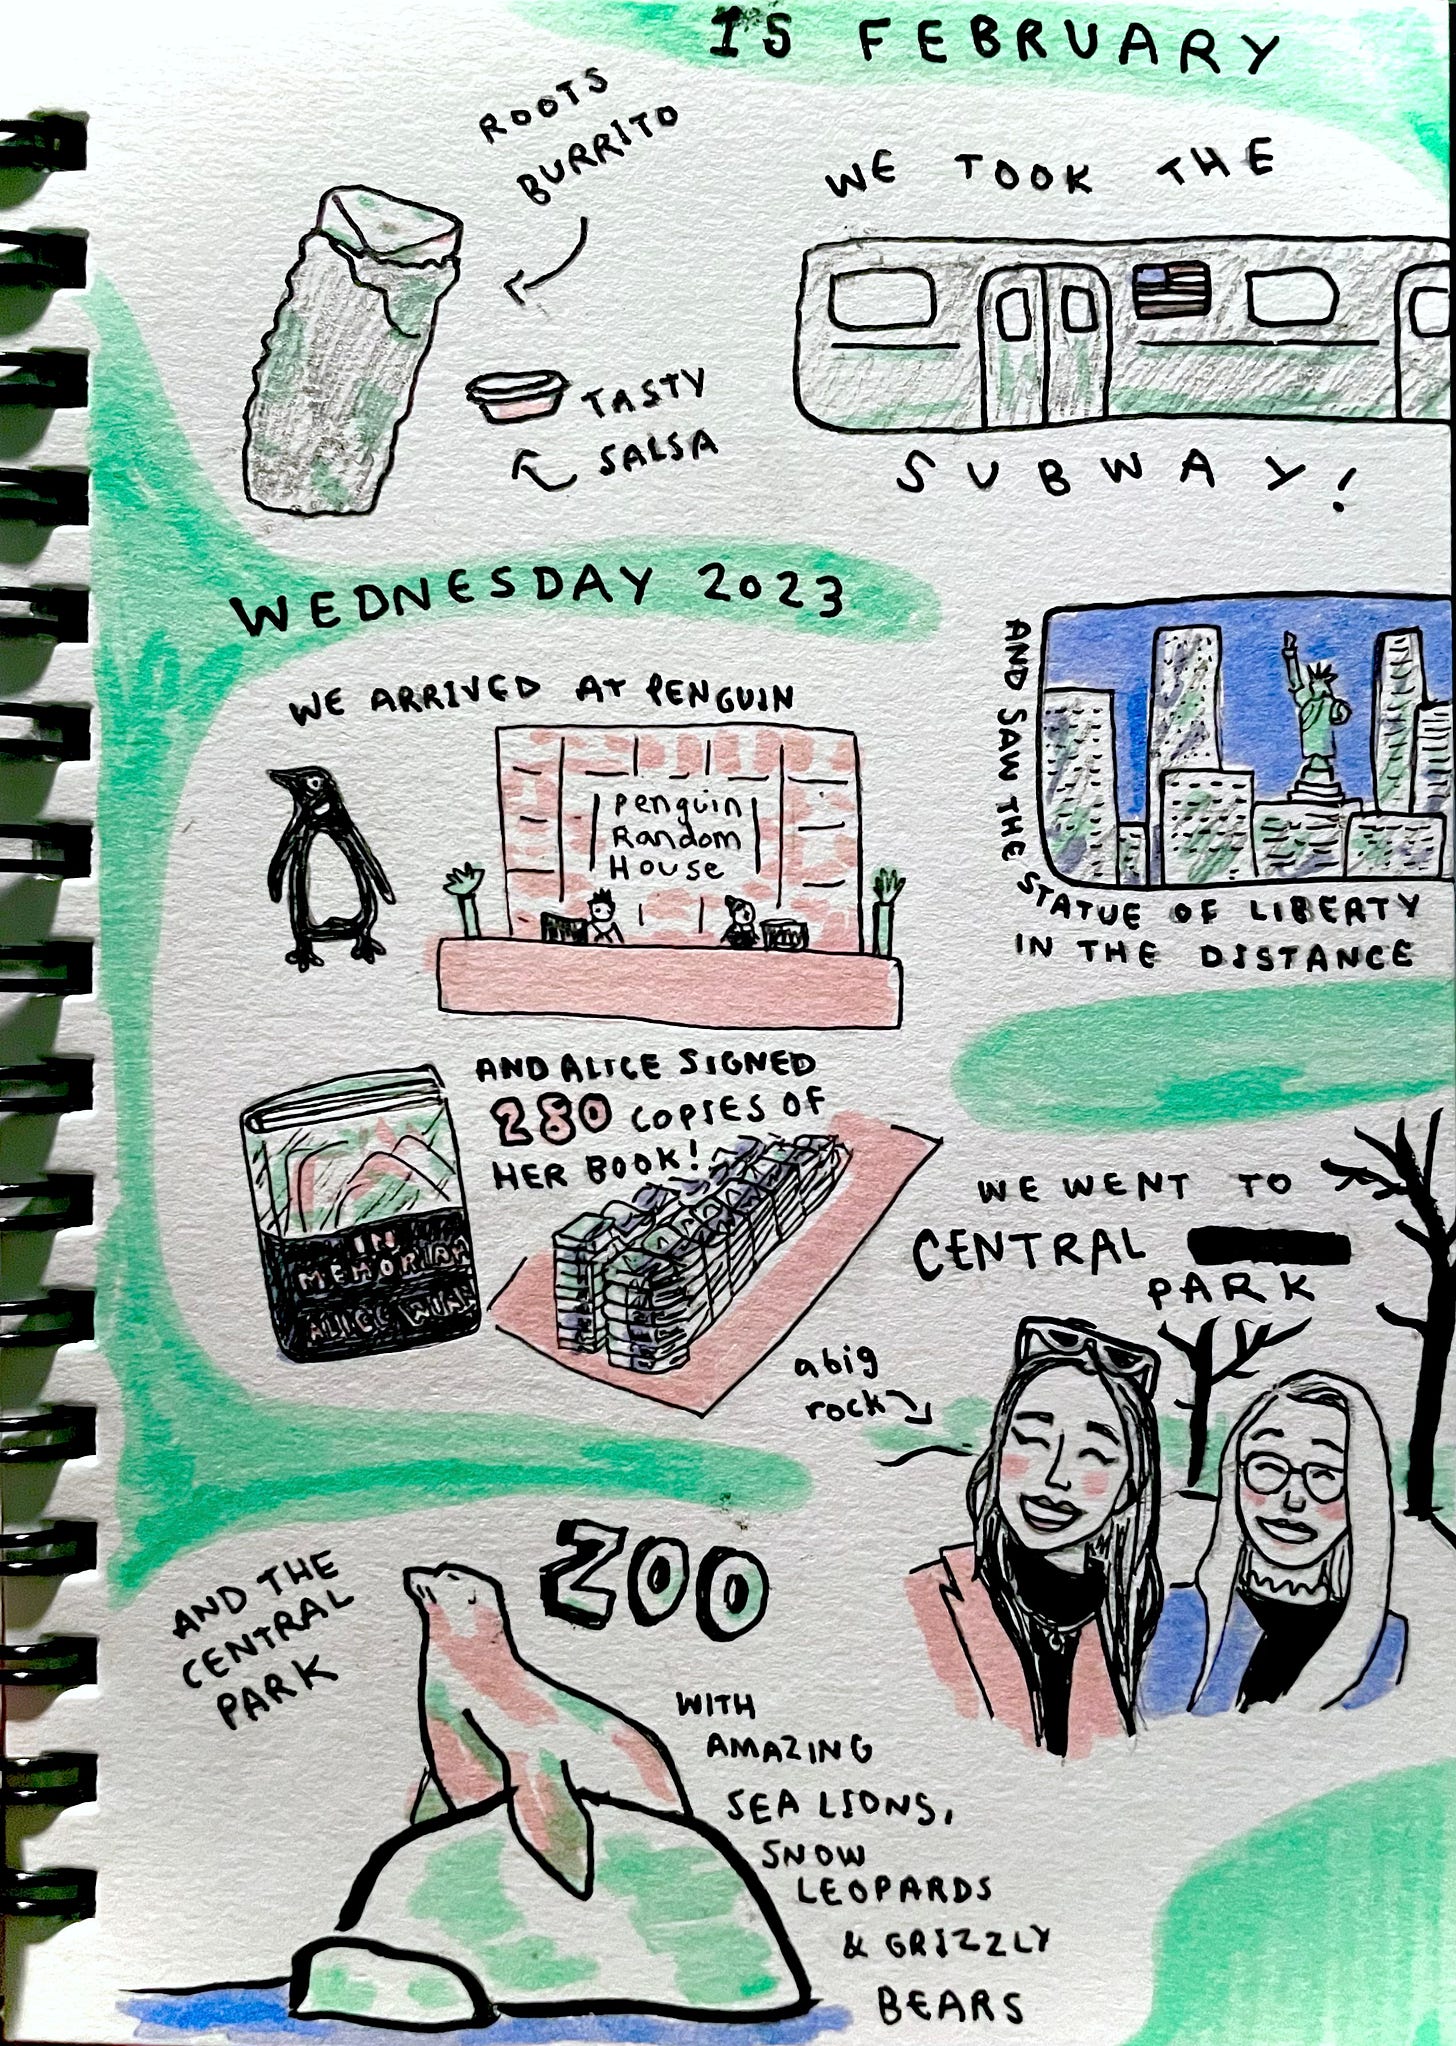 15 FEBRUARY
ROOTS
BURRITO
TASTY
SALSA
WE TOOK THE
SUBWAY!
WEDNESDAY 2023
AND SAW THE
STATUE OF LIBERTY
IN THE DISTANCE
WE ARRIVED AT PENGUIN
Penguin
Random
House
AND ALICE SIGNED
280 COPIES OF
HER BOOK!
IN
MEMORIAM
ALICE WINN
WE WENT TO
CENTRAL
PARK
a big
rock
AND THE
CENTRAL
PARK
ZOO
WITH
AMAZING
SEA LIONS,
SNOW
LEOPARDS
& GRIZZLY
BEARS